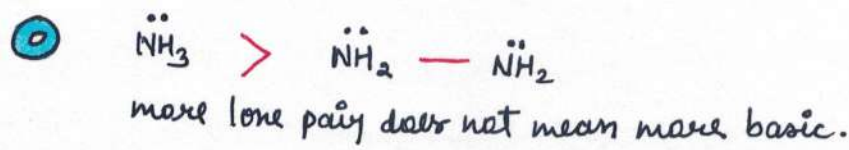 N̈H₃ > N̈H₂ — N̈H₂
more lone pair does not mean more basic.